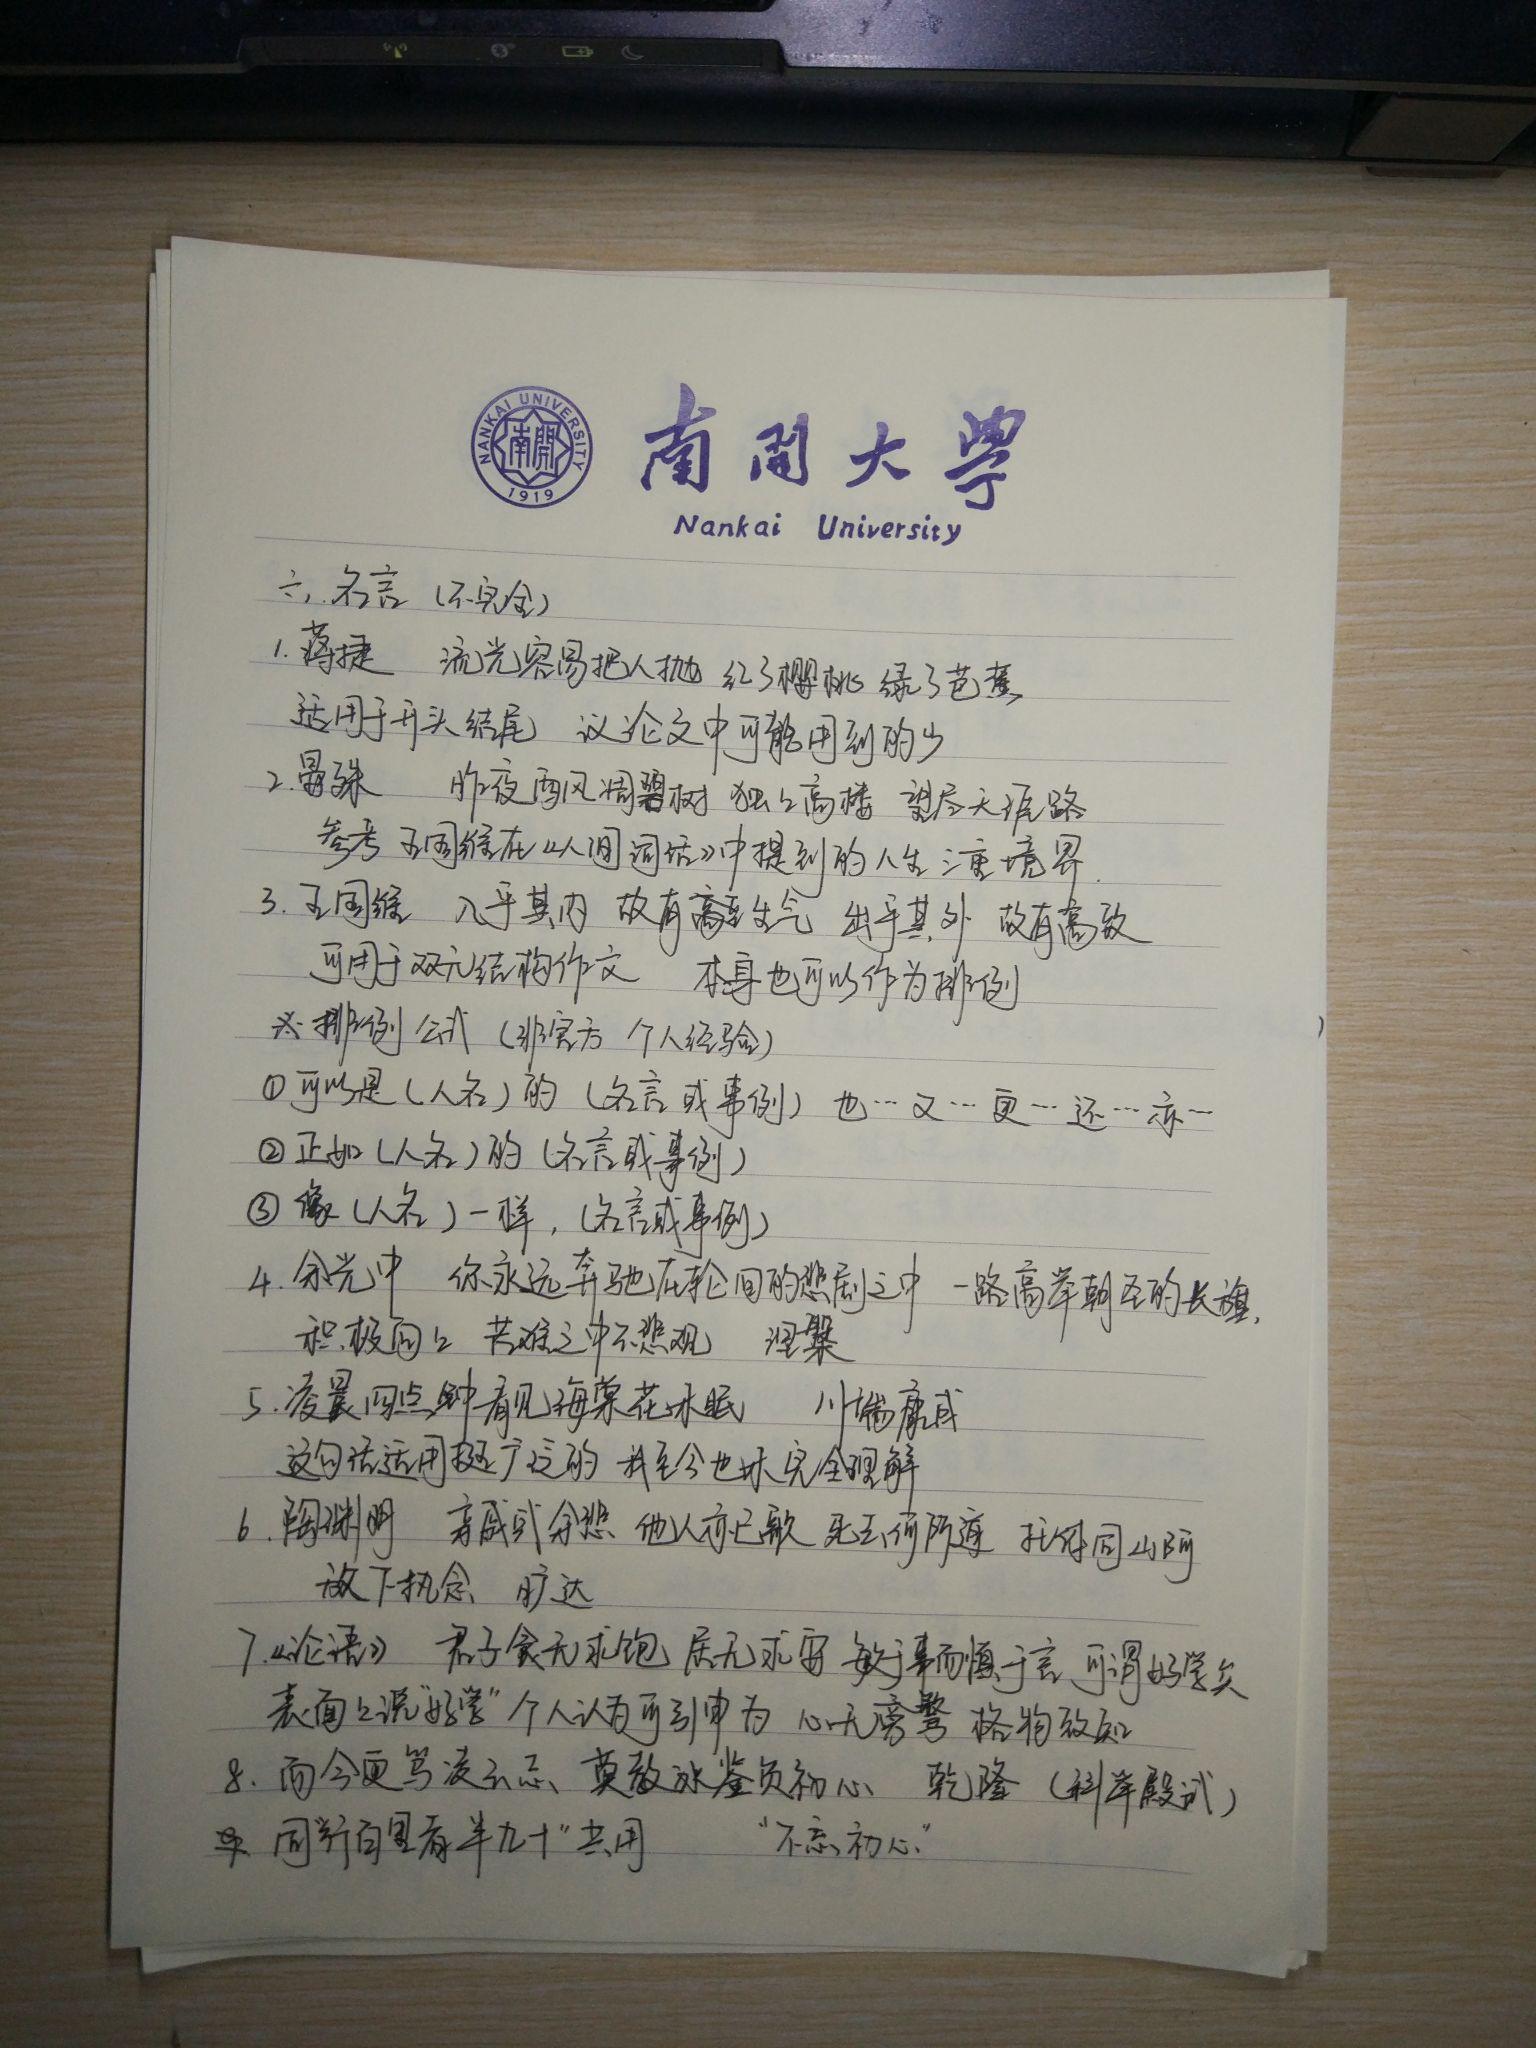 NANKAI UNIVERSITY
南開
1919
南開大學
Nankai University
六.名言（不完全）
1.蒋捷 流光容易把人抛 红了樱桃 绿了芭蕉
适用于开头结尾 议论文中可能用到的少
2.晏殊 昨夜西风凋碧树 独上高楼 望尽天涯路
参考王国维在《人间词话》中提到的人生三重境界.
3.王国维 入乎其内 故有高生气 出乎其外 故有高致
可用于双元结构作文 本身也可以作为排例
※排例公式（非官方 个人经验）
①可以是（人名）的（名言或事例）也…又…更…还…亦…
②正如（人名）的（名言或事例）
③像（人名）一样,（名言或事例）
4.余光中 你永远奔驰在轮回的悲剧之中 一路高举朝圣的长旗.
积极向上 苦难之中不悲观 涅槃
5.凌晨四点钟看见海棠花未眠 川端康成
这句话适用挺广泛的 我至今也未完全理解
6.陶渊明 亲戚或余悲 他人亦已歌 死去何所道 托体同山阿
放下执念 旷达
7.《论语》 君子食无求饱 居无求安 敏于事而慎于言 可谓好学矣
表面上说“好学”个人认为可引申为 心无旁骛 格物致知
8.而今更笃凌云志 莫教冰鉴负初心 乾隆（科举殿试）
同“行百里者半九十”共用 “不忘初心”